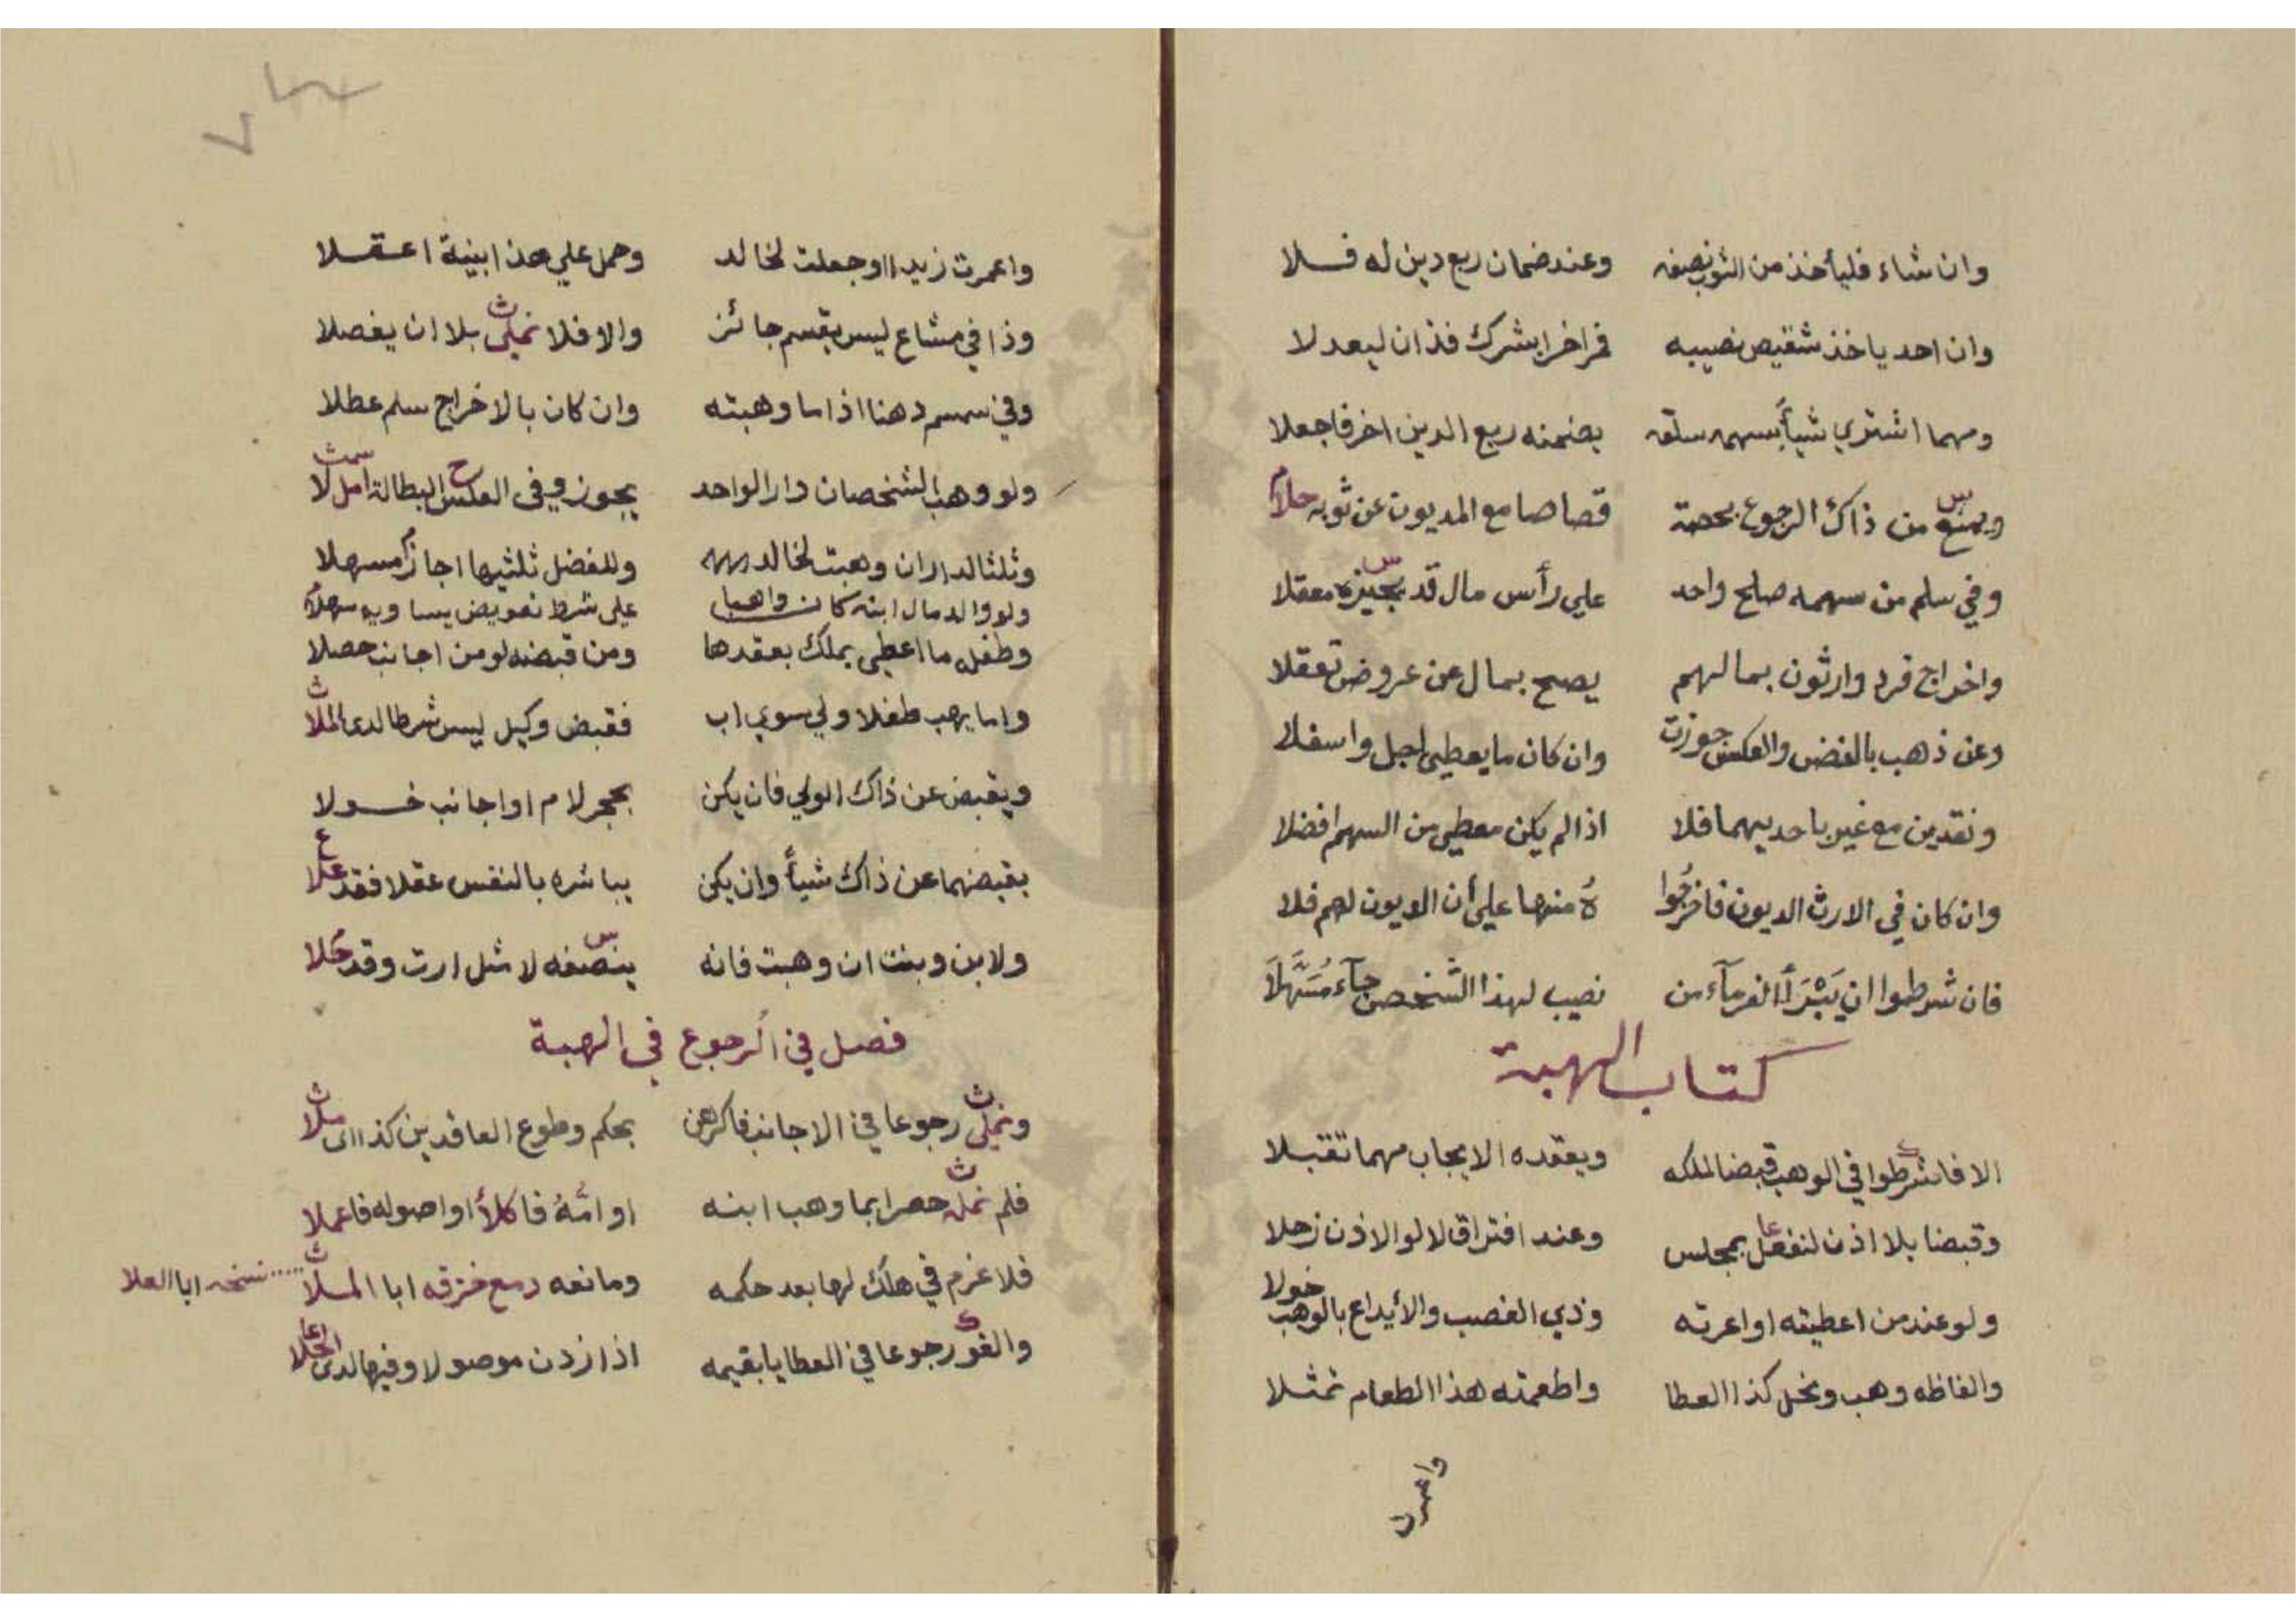 وان شاء فليأخذ من الثوب نصفه وعند ضمان ربع دين له فلا
وان احد ياخذ شقيص نصيبه فراخرا بشرك فذان ليعدلا
ومهما اشتري شيأ بسهمه سلته يضمنه ربع الدين اخر فاجعلا
ويمنع من ذاك الرجوع بحصة قصاصا مع المديون عن ثوبه حلا
وفي سلم من سهمه صلح واحد علي رأس مال قد يجيزه معقلا
واخراج فرد وارثون بمالهم يصح بمال عن عروض تعقلا
وعن ذهب بالفض والعكس جوزت وان كان ما يعطي اجل واسفلا
ونقدين مع غير باحديهما فلا اذا لم يكن معطي من السهم افضلا
وان كان في الارث الديون فاخرجوا ه منها علي أن الديون لهم فلا
فان شرطوا ان يبرأ الغرمآء من نصيب لهذا الشخص جآء مسهلا
كتاب الهبة
الا فاشرطوا في الوهب قبضا لملكه ويعقده الايجاب مهما تقبلا
وقبضا بلا اذن لنفعل بمجلس وعند افتراق لا لو الاذن زحلا
ولو عند من اعطيته او اعرته وذي الغصب والأيداع بالوهب خولا
والفاظه وهب ونحل كذا العطا واطعمته هذا الطعام تمثلا
واعمرت
واعمرت زيدا او جعلت لخالد وحمل علي هذا بنية اعقلا
وذا في مشاع ليس يقسم جائز والا فلا نملى بلا ان يفصلا
وفي سمسم دهنا اذا ما وهبته وان كان بالاخراج سلم عطلا
ولو وهب الشخصان دارا لواحد يجوز وفى العكس البطالة امل لا
وثلثا لدار ان وهبت لخالد وللفضل ثلثيها اجاز مسهلا
ولو والد مال ابنه كان واهبا على شرط تعويض يساويه سهلا
وطفل ما اعطي يملك بعقدها ومن قبضه لو من اجانب حصلا
واما يهب طفلا ولي سوي اب فقبض وكيل ليس شرطا لدى الملا
ويقبض عن ذاك الولي فان يكن بحجر لام او اجانب خولا
بقبضهما عن ذاك شيأ وان يكن يباشره بالنفس عقلا فقد علا
ولابن وبنت ان وهبت فانه ينصفه لا مثل ارث وقد حلا
فصل في الرجوع في الهبة
ونملى رجوعا في الاجانب فاكرهن بحكم وطوع العاقدين كذا اى ملا
فلم نمله حصرا بما وهب ابنه او امه فاكلأ او اصوله فاعملا
فلا غرم في هلك لها بعد حكمه ومانعه دمع خزقه ابا الملا نسخه ابا العلا
والغو رجوعا في العطايا بقيمه اذا زدن موصولا وفيها لدى الحلا